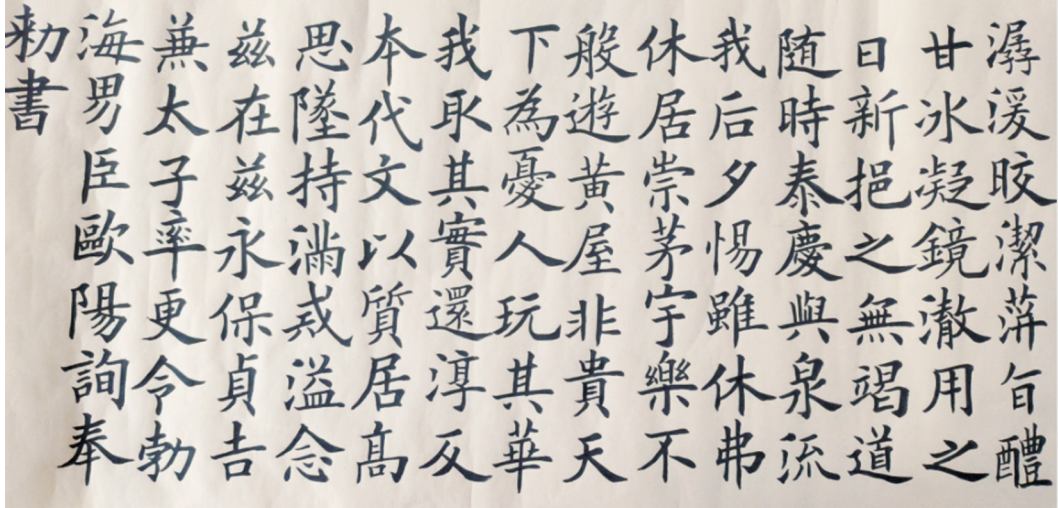 潺湲晈潔萍旨醴
甘冰凝鏡澈用之
日新挹之無竭道
随時泰慶與泉流
我后夕惕雖休弗
休居崇茅宇樂不
般遊黃屋非貴天
下為憂人玩其華
我取其實還淳反
本代文以質居高
思墜持滿戒溢念
兹在兹永保貞吉
兼太子率更令勃
海男臣歐陽詢奉
勑書